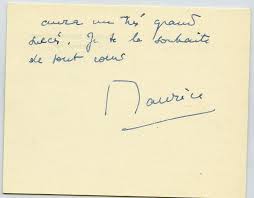 aura un très grand
succès. Je te le souhaite
de tout cœur
Maurice